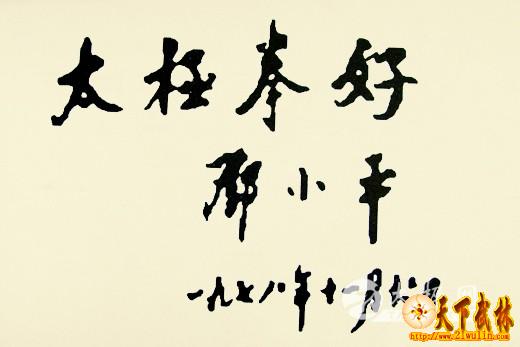 太极拳好
邓小平
一九七八年十一月十六日
天下武林
http://www.21wulin.com